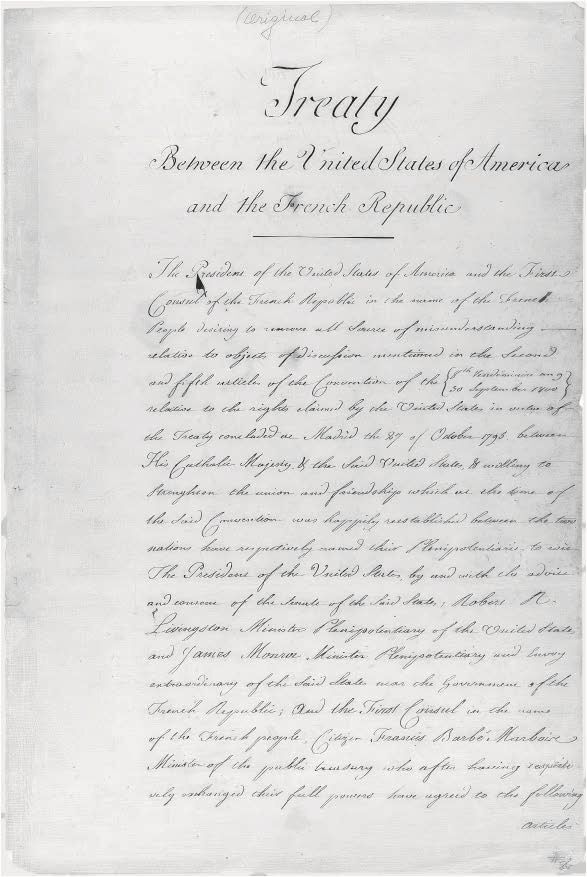 (Original)
Treaty
Between the United States of America
and the French Republic
The President of the United States of America and the First
Consul of the French Republic in the name of the French
People desiring to remove all Source of misunderstanding
relative to objects of discussion mentioned in the Second
and fifth articles of the Convention of the {8th Vendémiaire an 9
30 September 1800}
relative to the rights claimed by the United States in virtue of
the Treaty concluded at Madrid the 27 of October 1795, between
His Catholic Majesty, & the Said United States, & willing to
Strengthen the union and friendship which at the time of
the Said Convention was happily reestablished between the two
nations have respectively named their Plenipotentiaries to wit
The President of the United States, by and with the advice
and consent of the Senate of the Said States; Robert R.
Livingston Minister Plenipotentiary of the United States
and James Monroe Minister Plenipotentiary and Envoy
extraordinary of the Said States near the Government of the
French Republic; And the First Consul in the name
of the French people, Citizen Francis Barbé Marbois
Minister of the public treasury who after having respecti-
vely exchanged their full powers have agreed to the following
articles